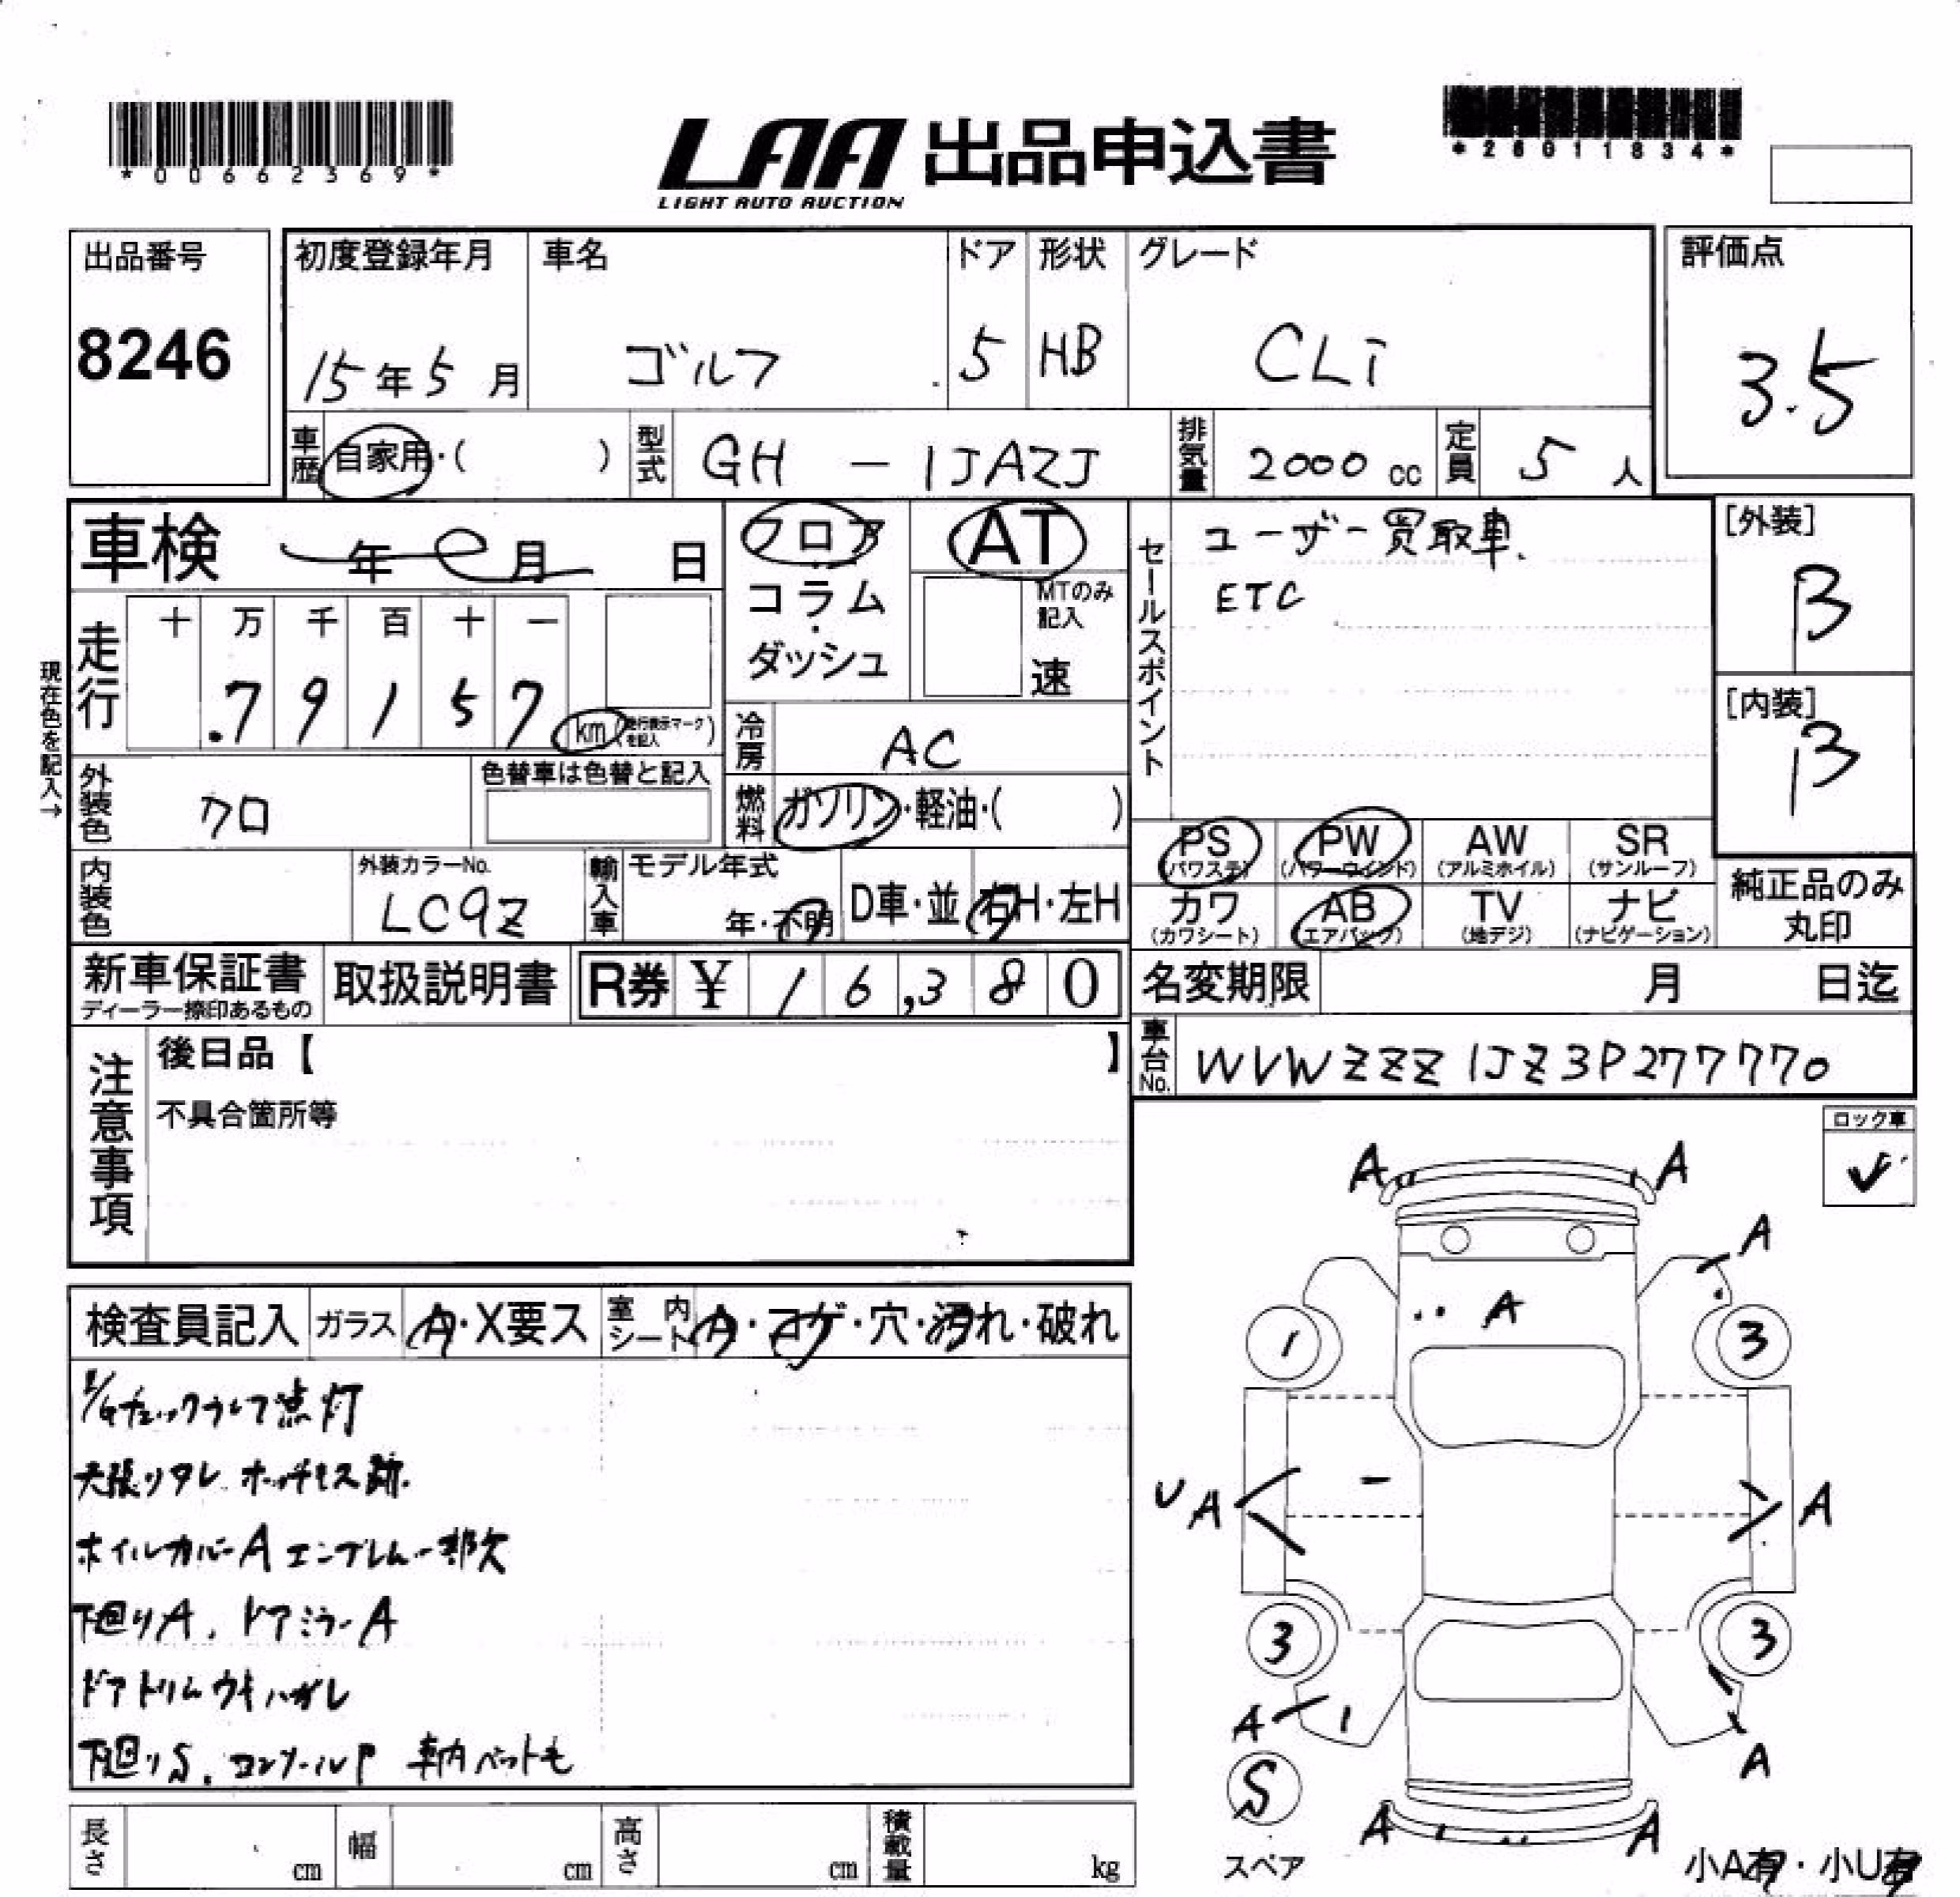 *00662369*
LAA 出品申込書
LIGHT AUTO AUCTION
*26011834*
出品番号 8246
初度登録年月 15年5月
車名 ゴルフ
ドア 5
形状 HB
グレード CLi
評価点 3.5
車歴 自家用・( )
型式 GH - 1JAZJ
排気量 2000 cc
定員 5 人
車検 年 月 日
フロア・コラム・ダッシュ
AT
MTのみ記入
速
セールスポイント
ユーザー買取車.
ETC
[外装] B
[内装] B
現在色を記入→
走行 十 万 千 百 十 一
79157 km (走行表示マークを記入)
冷房 AC
燃料 ガソリン・軽油・( )
外装色 クロ
色替車は色替と記入
内装色
外装カラーNo. LC9Z
輸入車 モデル年式 年・不明
D車・並 右H・左H
PS (パワステ) PW (パワーウインド) AW (アルミホイル) SR (サンルーフ)
カワ (カワシート) AB (エアバック) TV (地デジ) ナビ (ナビゲーション)
純正品のみ丸印
新車保証書 ディーラー捺印あるもの
取扱説明書
R券 ¥ 16,380
名変期限 月 日迄
車台No. WVWZZZ1JZ3P277770
注意事項
後日品【 】
不具合箇所等
ロック車 ✓
検査員記入 ガラス A・X要ス 室内シート A・コゲ・穴・汚れ・破れ
E/Gチェックランプ点灯
天張りタレ ホッチキス跡.
ホイルカバーA エンブレム一部欠
下廻りA. ドアミラーA
ドアトリムウキハガレ
下廻りS. コンソールP 車内ペット毛
A A
A
A
1 3
U A A
3 3
A A
S
スペア
A A
小A有・小U有
長さ cm 幅 cm 高さ cm 積載量 kg